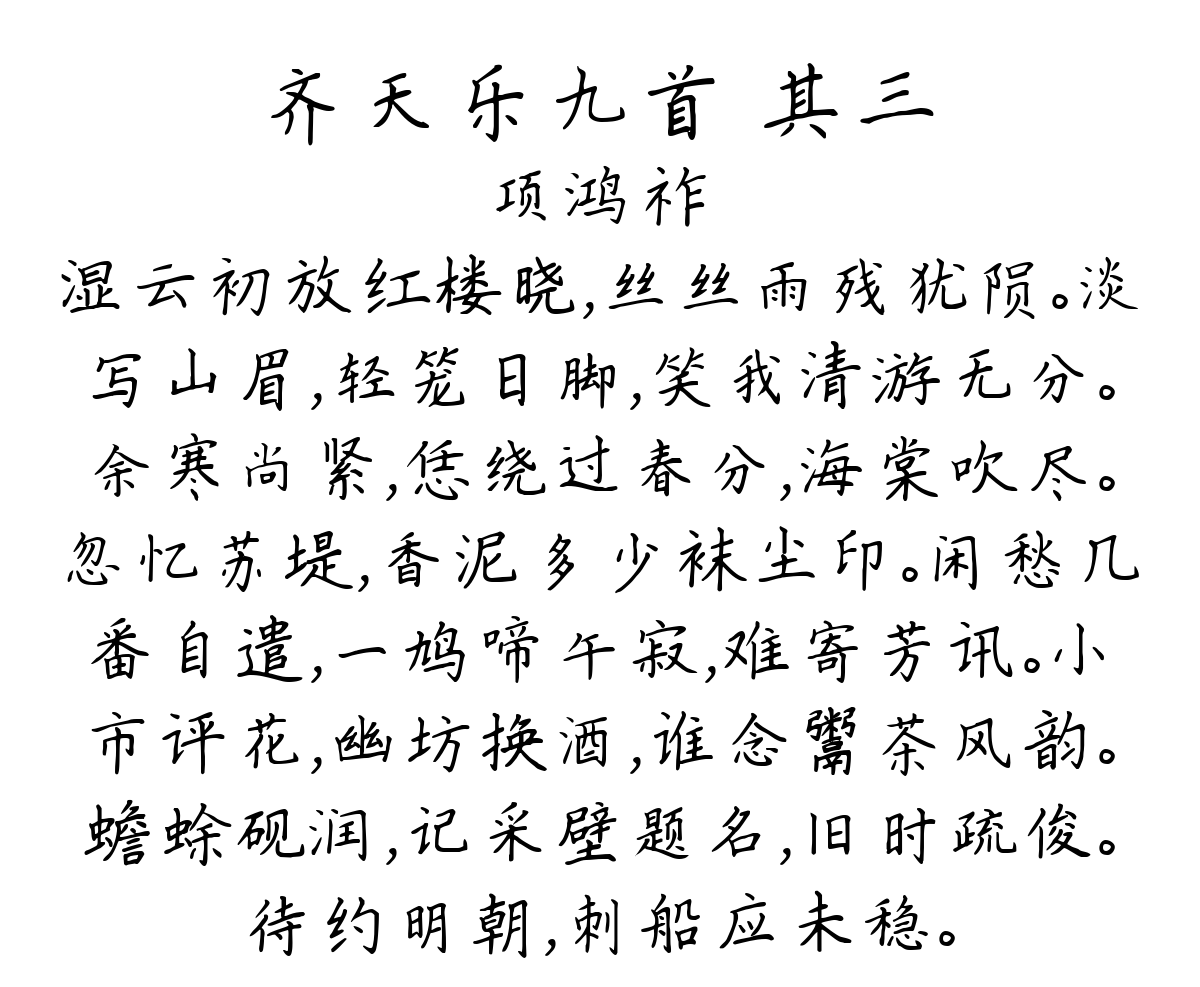 齐天乐九首 其三
项鸿祚
湿云初放红楼晓,丝丝雨残犹陨。淡
写山眉,轻笼日脚,笑我清游无分。
余寒尚紧,恁绕过春分,海棠吹尽。
忽忆苏堤,香泥多少袜尘印。闲愁几
番自遣,一鸠啼午寂,难寄芳讯。小
市评花,幽坊换酒,谁念鬻茶风韵。
蟾蜍砚润,记采壁题名,旧时疏俊。
待约明朝,刺船应未稳。